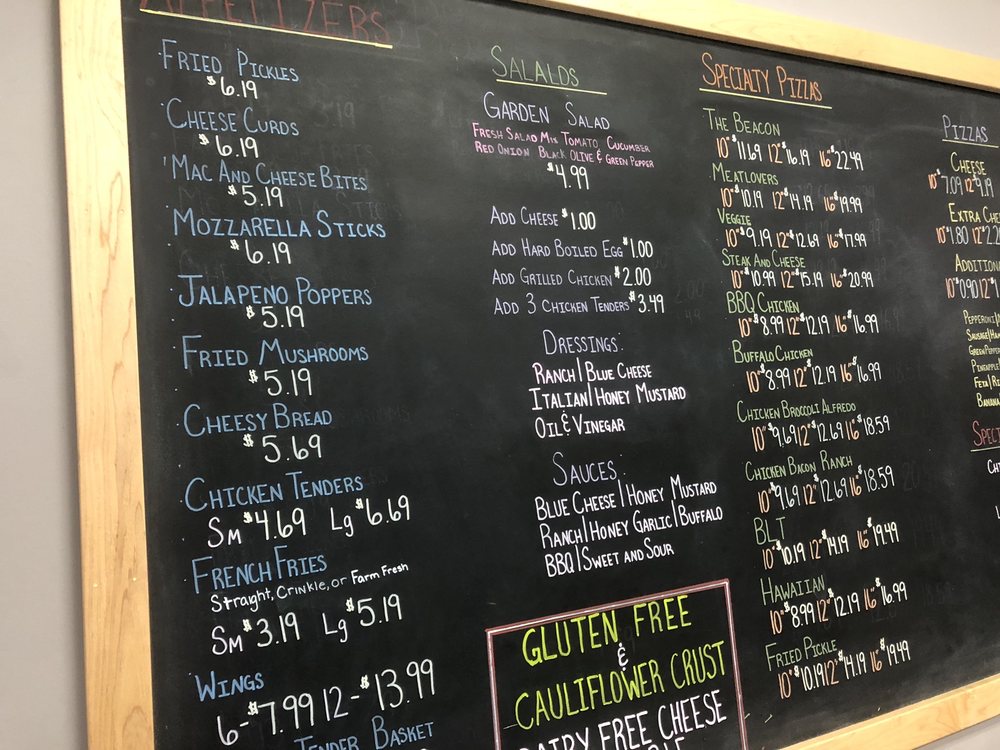 APPETIZERS
FRIED PICKLES
$6.19
CHEESE CURDS
$6.19
MAC AND CHEESE BITES
$5.19
MOZZARELLA STICKS
$6.19
JALAPENO POPPERS
$5.19
FRIED MUSHROOMS
$5.19
CHEESY BREAD
$5.69
CHICKEN TENDERS
SM $4.69 LG $6.69
FRENCH FRIES
Straight, Crinkle, or Farm Fresh
SM $3.19 LG $5.19
WINGS
6-$7.99 12-$13.99
TENDER BASKET
SALALDS
GARDEN SALAD
FRESH SALAD MIX TOMATO CUCUMBER
RED ONION BLACK OLIVE & GREEN PEPPER
$4.99
ADD CHEESE $1.00
ADD HARD BOILED EGG $1.00
ADD GRILLED CHICKEN $2.00
ADD 3 CHICKEN TENDERS $3.49
DRESSINGS:
RANCH|BLUE CHEESE
ITALIAN|HONEY MUSTARD
OIL & VINEGAR
SAUCES:
BLUE CHEESE|HONEY MUSTARD
RANCH|HONEY GARLIC|BUFFALO
BBQ|SWEET AND SOUR
GLUTEN FREE
&
CAULIFLOWER CRUST
DAIRY FREE CHEESE
SPECIALTY PIZZAS
THE BEACON
10"$11.69 12"$16.19 16"$22.49
MEATLOVERS
10"$10.19 12"$14.19 16"$19.99
VEGGIE
10"$9.19 12"$12.69 16"$17.99
STEAK AND CHEESE
10"$10.99 12"$15.19 16"$20.99
BBQ CHICKEN
10"$8.99 12"$12.19 16"$16.99
BUFFALO CHICKEN
10"$8.99 12"$12.19 16"$16.99
CHICKEN BROCCOLI ALFREDO
10"$9.69 12"$12.69 16"$18.59
CHICKEN BACON RANCH
10"$9.69 12"$12.69 16"$18.59
BLT
10"$10.19 12"$14.19 16"$19.49
HAWAIIAN
10"$8.99 12"$12.19 16"$16.99
FRIED PICKLE
10"$10.19 12"$14.19 16"$19.49
PIZZAS
CHEESE
10"$7.09 12"$9.19
EXTRA CHE
10"$1.80 12"$2.2
ADDITIONA
10"$0.90 12"$1
PEPPERONI
SAUSAGE|HA
GREEN PEPPER
PINEAPPLE
FETA|
BANANA
SPECI
CH
L